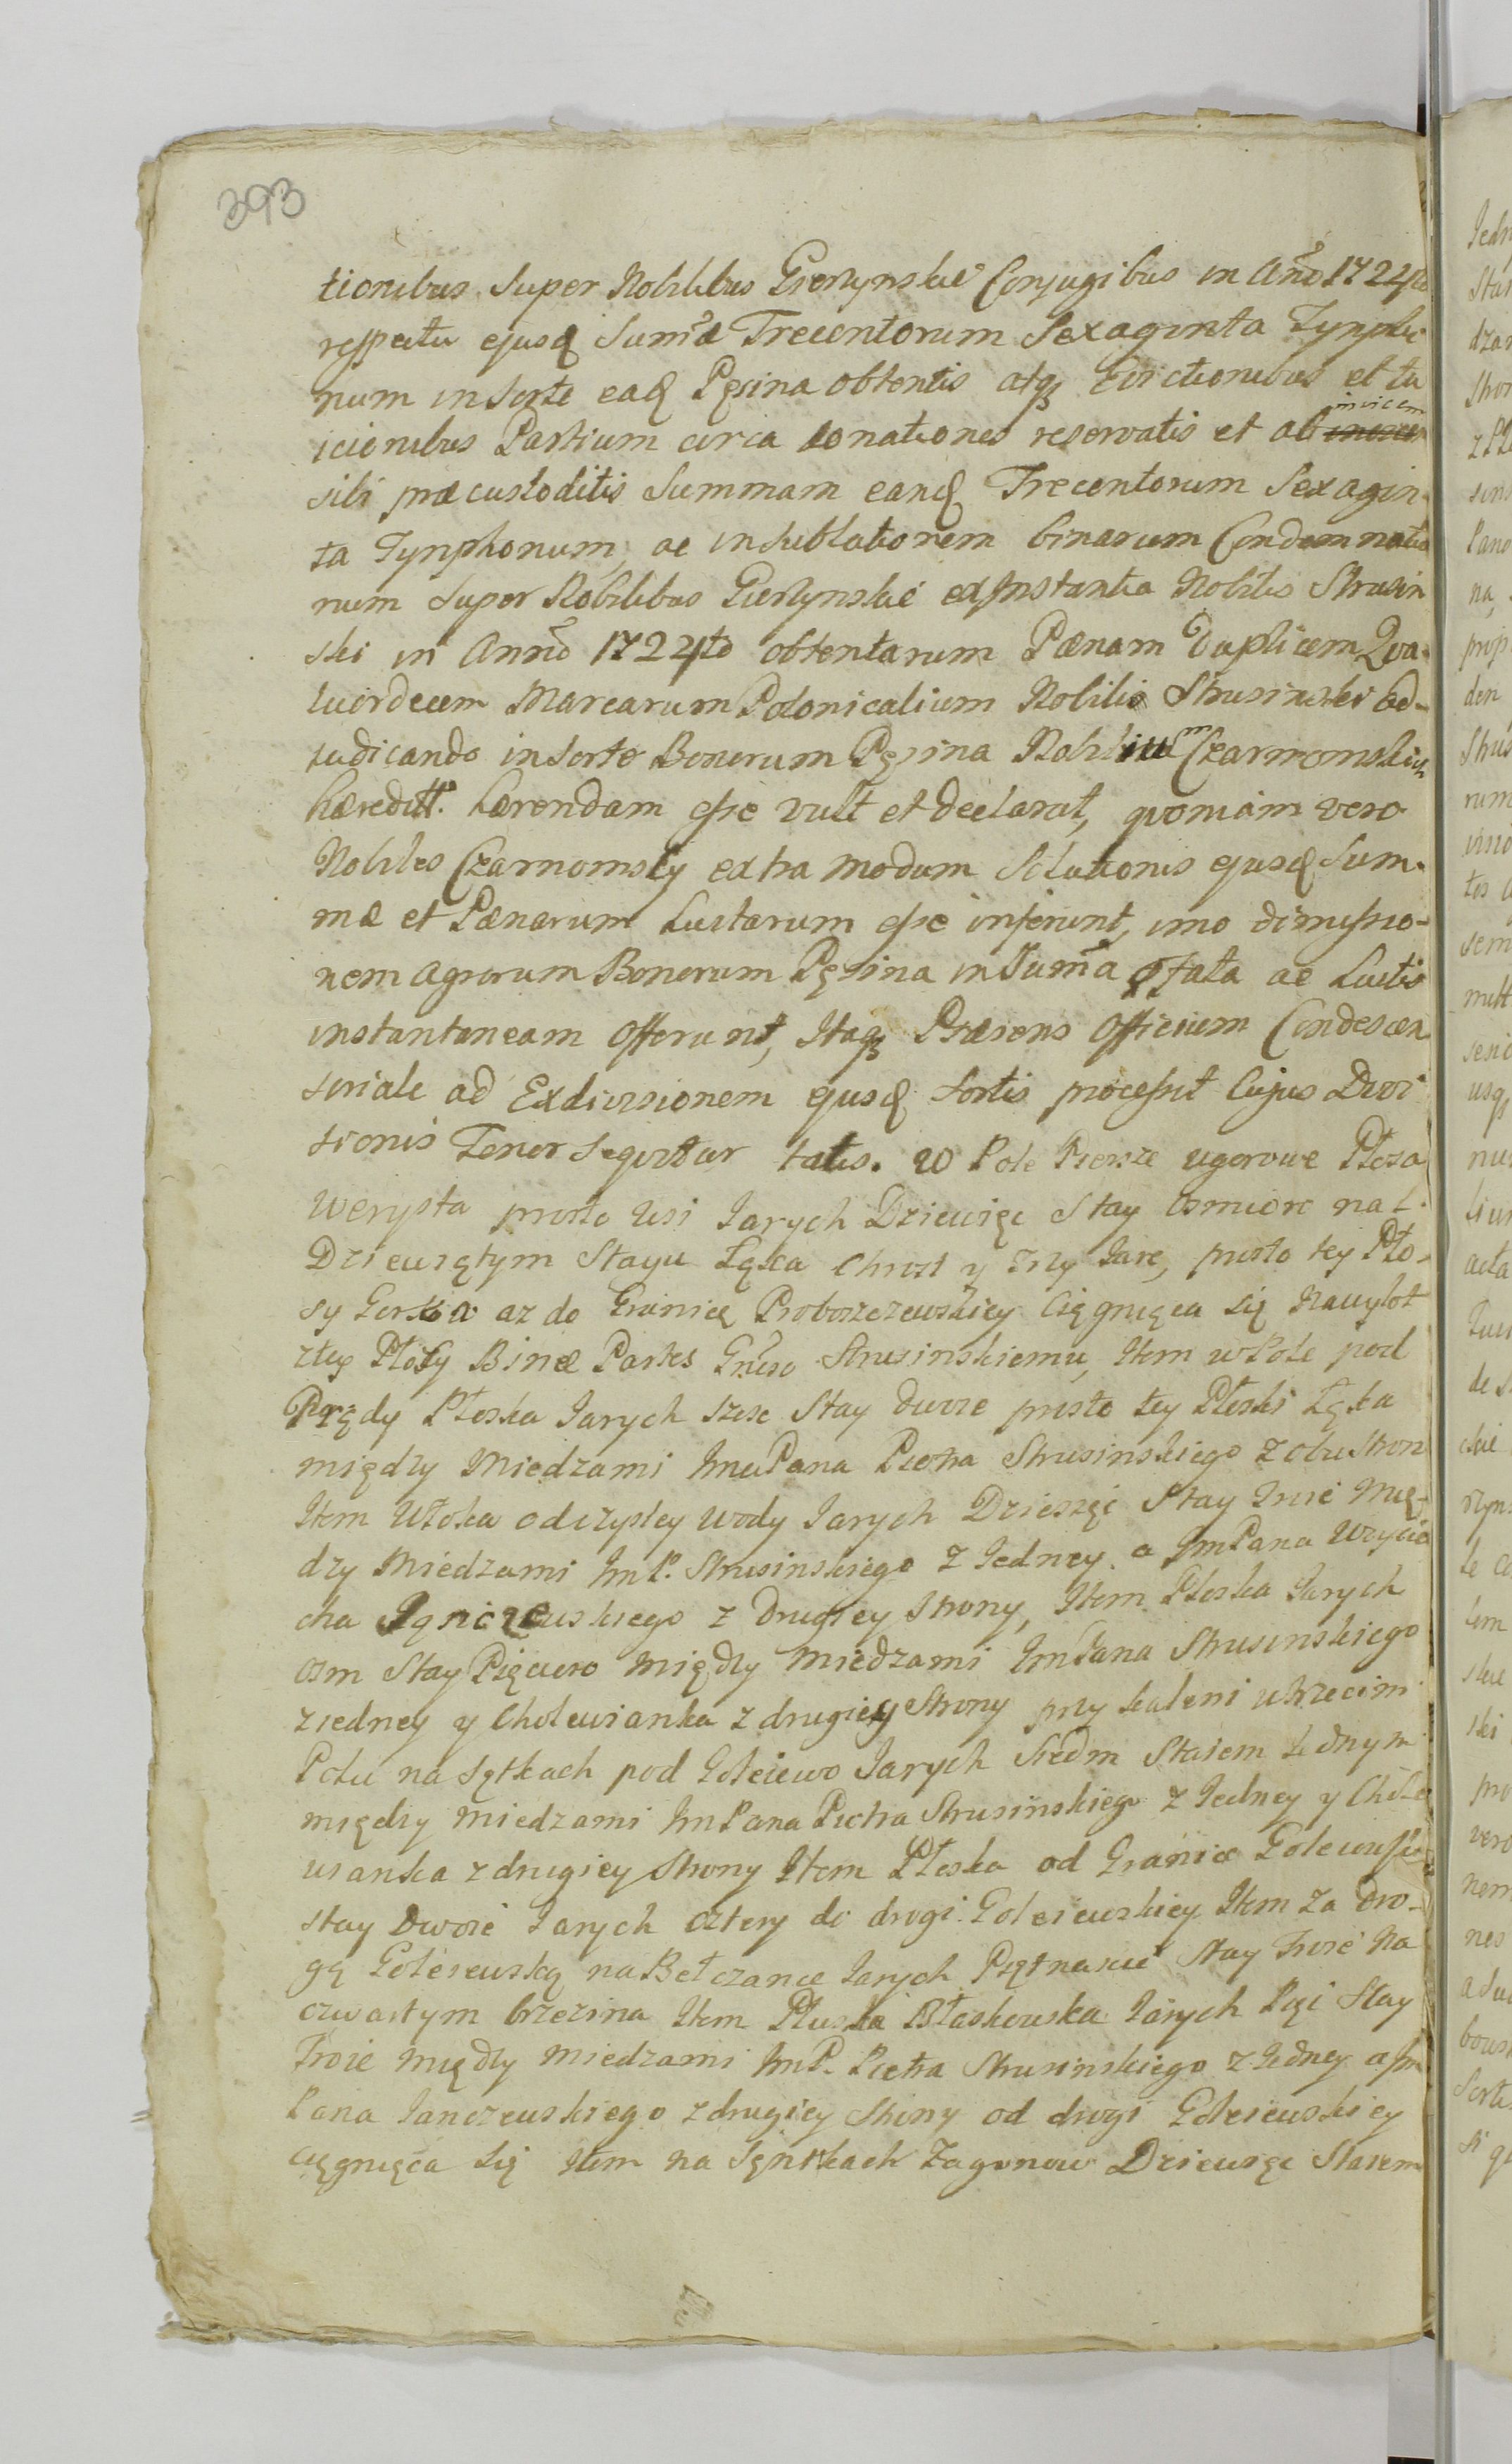 393
tionibus Super Nobilibus Gierłynskie Conjugibus in Año 1724to
respectu ejusd Sumæ Trecentorum Sexaginta Tynpho
num in Sorte ead Pęsina obtentis atq Evictionibus et tu
icionibus Partium circa donationes reservatis et ab invicem
sibi præcustoditis Summam eand Trecentorum Sexagin-
ta Tynphonum, ac in sublationem binarum Condemnatio
num Super Nobilibus Gierłynskie ex Instantia Nobilis Strusin
ski in Anno 1724to obtentarum Pænam Duplicem Qva-
tuordecem Marcarum Polonicalium Nobilis Strusinski ad-
judicando in Sorte Bonorum Pęsina Nobilium Czarnomskich
hæreditt. hærendam esse vult et declarat, qvoniam vero
Nobiles Czarnomscy extra modum Solutionis ejusd Sum-
mæ et Pænarum Luitarum esse inferunt, imo dimissio-
nem agrorum Bonorum Pęsina in Suma pfata ac Luitis
instantaneam Offerunt, Itaq Præsens Officium Condescen
soriale ad Exdivisionem ejusd Sortis processit Cujus Divi
sionis Tenor Seqvitur talis. W Pole Piersze ugorowe Płosa
Werysta prosto Wsi Jarych Dziewięc Stay Osmioro na
Dziewiętym Stayu Łęka Chrost y Trzy Jare, prosto tey Pło-
sy az do Granice Proboszczewskiey Cięgnięca Się Nawylot
ztey Płosy Binæ Partes Strusinskiemu, Item w Pole pod
Prędy Płoska Jarych szesc Stay dwoie prosto tey Płoski Łęka
między Miedzami ImcPana Piotra Strusinskiego z obu Stron
Item Włoka odczystey Wody Jarych Dziesięc Stay Troie Mię-
dzy Miedzami ImP. Strusinskiego z Jedney a ImPana Woycie
cha z Drugiey Strony, Item Płoska Jarych
osm Stay Pięcioro między miedzami ImPana Strusinskiego
z iedney y Cholewianka z drugiey Strony przy kaleni w trzecim
Polu na Sętkach pod Goleiewo Jarych Siedm Staiem Jednym
między miedzami ImPana Piotra Strusinskiego z Jedney y Chole
wianka z drugiey Strony Item Płoska od Granice
Stay Dwoie Jarych cztery do drogi Goleiewskiey Item Za Dro-
gę Goleiewską na Bełczance Jarych Piętnascie Stay Troie Na
czwartym brzezina Item Płuska Błaskowska Jarych Pięc Stay
Troie między miedzami ImP. Piotra Strusinskiego z Jedney a Im
Pana Janczewskiego z drugiey Strony od drogi Goleiewskiey
cięgnięca Się Item na Sęntkach Zagonow Dziewięc Staiem